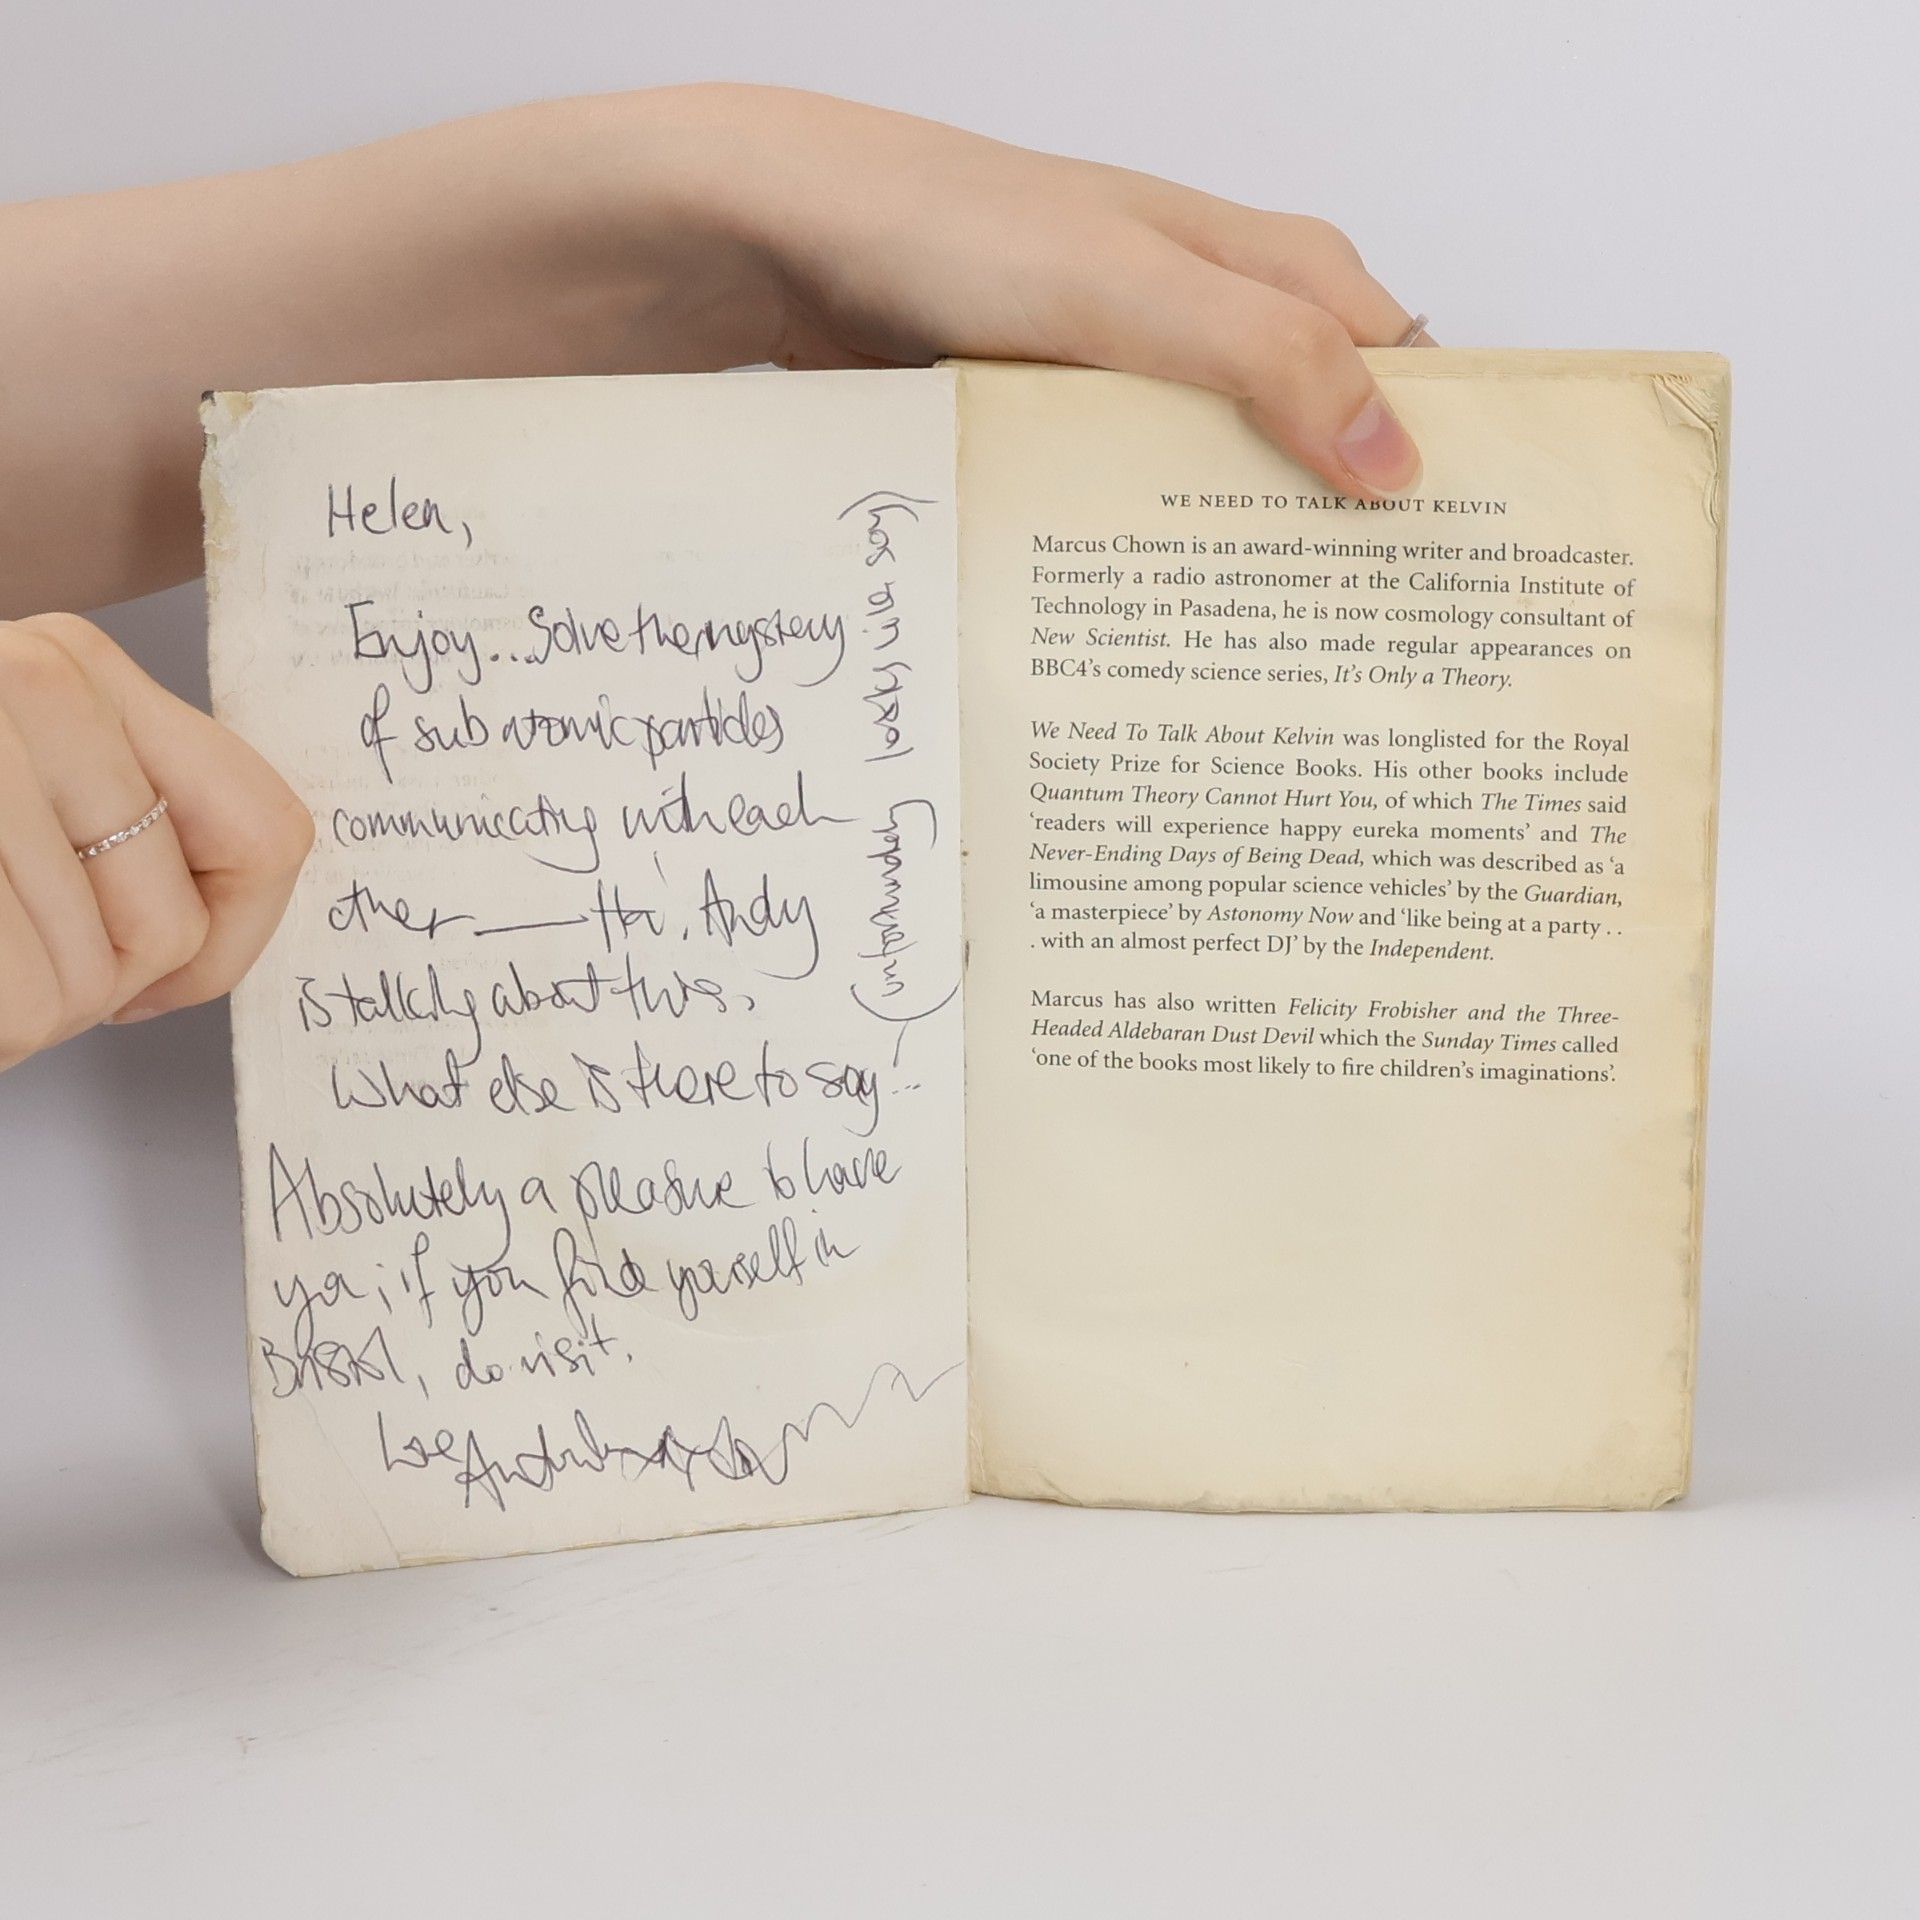 Helen,
Enjoy... Solve the mystery
of sub atomic particles
communicating with each
other — Ha, Andy
is talking about this,
What else is there to say...
(unfortunately lately will say)
Absolutely a pleasure to have
ya; if you find yourself in
Bristol, do visit.
Love
WE NEED TO TALK ABOUT KELVIN
Marcus Chown is an award-winning writer and broadcaster.
Formerly a radio astronomer at the California Institute of
Technology in Pasadena, he is now cosmology consultant of
New Scientist. He has also made regular appearances on
BBC4's comedy science series, It's Only a Theory.
We Need To Talk About Kelvin was longlisted for the Royal
Society Prize for Science Books. His other books include
Quantum Theory Cannot Hurt You, of which The Times said
‘readers will experience happy eureka moments’ and The
Never-Ending Days of Being Dead, which was described as ‘a
limousine among popular science vehicles’ by the Guardian,
‘a masterpiece’ by Astonomy Now and ‘like being at a party . .
. with an almost perfect DJ’ by the Independent.
Marcus has also written Felicity Frobisher and the Three-
Headed Aldebaran Dust Devil which the Sunday Times called
‘one of the books most likely to fire children's imaginations’.